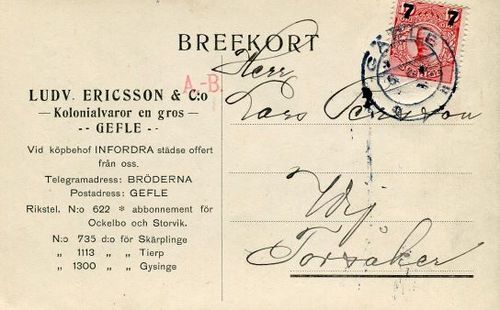 BREFKORT
A.-B.
LUDV. ERICSSON & C:o
— Kolonialvaror en gros —
-- GEFLE --
Vid köpbehof INFORDRA städse offert
från oss.
Telegramadress: BRÖDERNA
Postadress: GEFLE
Rikstel. N:o 622 * abbonnement för
Ockelbo och Storvik.
N:o 735 d:o för Skärplinge
„ 1113 „ „ Tierp
„ 1300 „ „ Gysinge
7 7
GÄFLE
Herr
Lars Persson
Wij
Torsåker